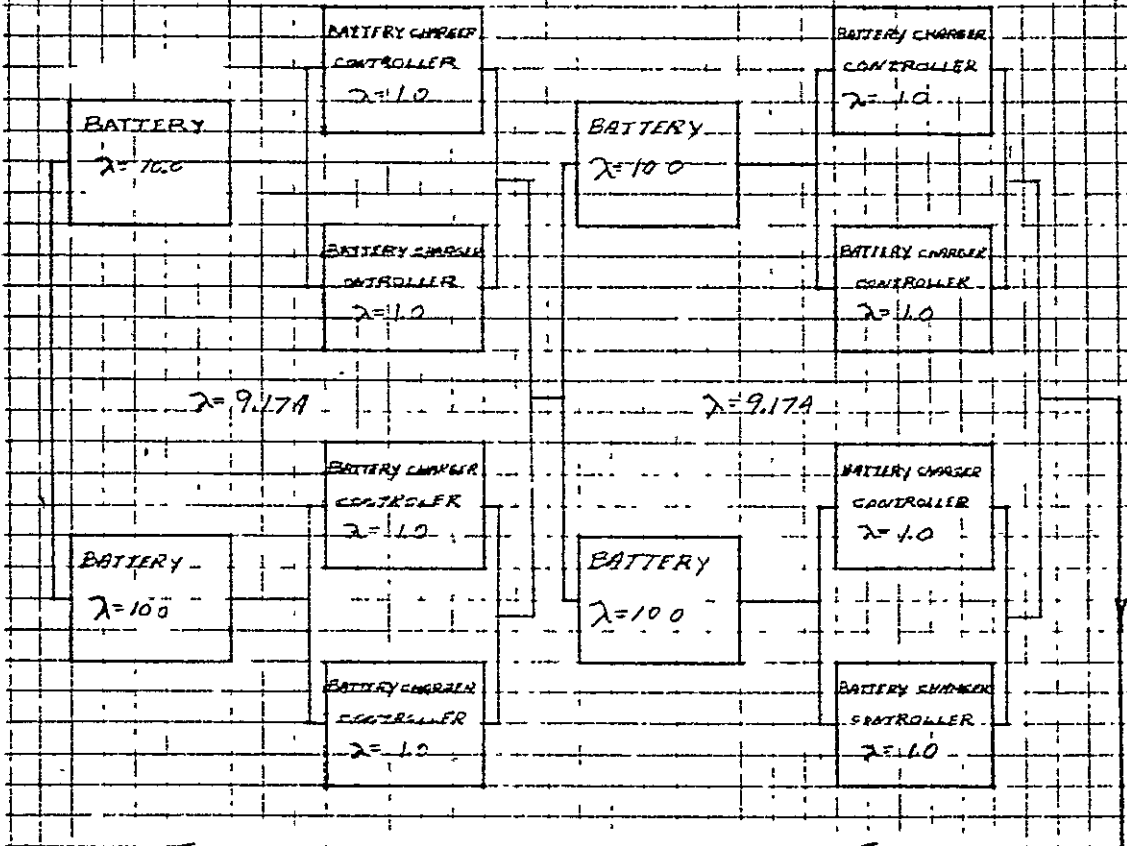 BATTERY CHARGER
CONTROLLER
λ=1.0
BATTERY CHARGER
CONTROLLER
λ=1.0
BATTERY
λ=10.0
BATTERY
λ=10 0
BATTERY CHARGER
ONTROLLER
λ=1.0
BATTERY CHARGER
CONTROLLER
λ=1.0
λ=9.174
λ=9.174
BATTERY CHARGER
CONTROLER
λ=1.0
BATTERY CHARGER
CONTROLLER
λ=1.0
BATTERY
λ=10 0
BATTERY
λ=10 0
BATTERY CHARGER
CONTROLLER
λ=1.0
BATTERY CHARGER
CONTROLLER
λ=1.0